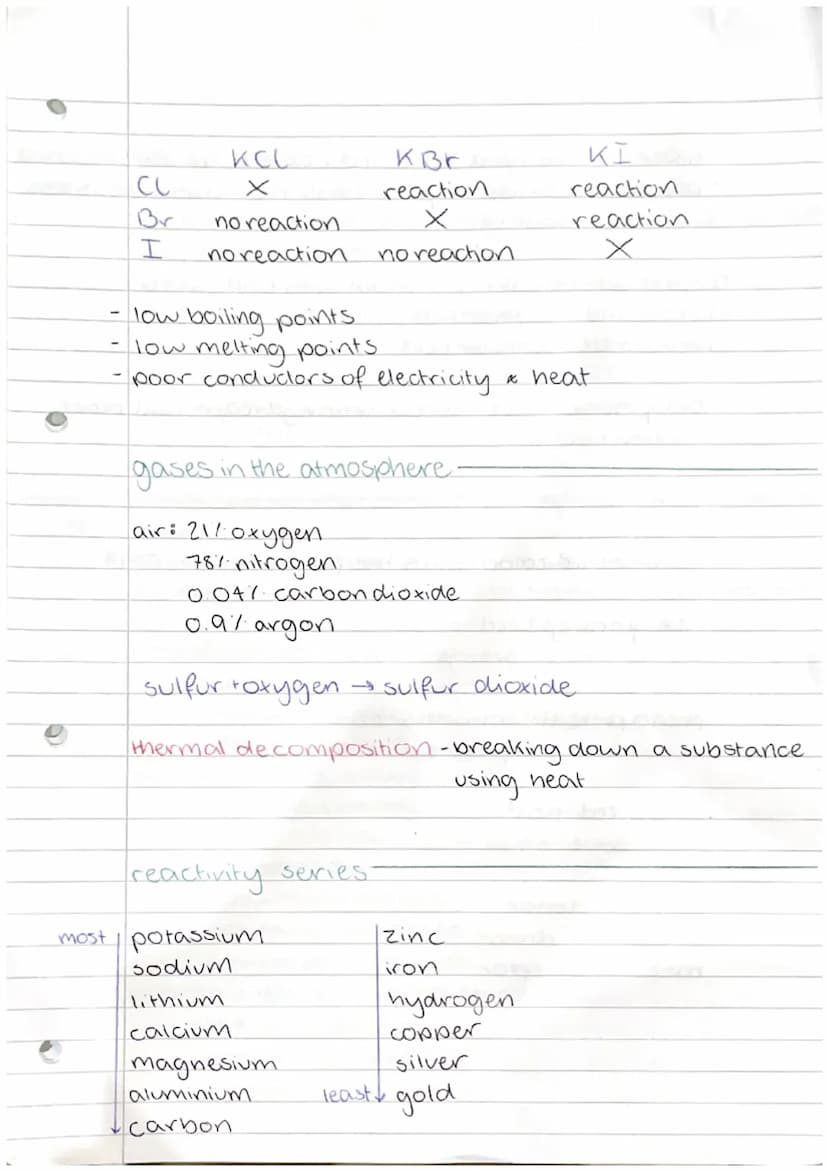 KCl KBr KI
Cl X reaction reaction
Br no reaction X reaction
I no reaction no reaction X
- low boiling points
- low melting points
- poor conductors of electricity & heat
gases in the atmosphere
air: 21% oxygen
78% nitrogen
0.04% carbon dioxide
0.9% argon
sulfur + oxygen → sulfur dioxide
thermal decomposition - breaking down a substance
using heat
reactivity series
most potassium zinc
sodium iron
lithium hydrogen
calcium copper
magnesium silver
aluminium least gold
carbon